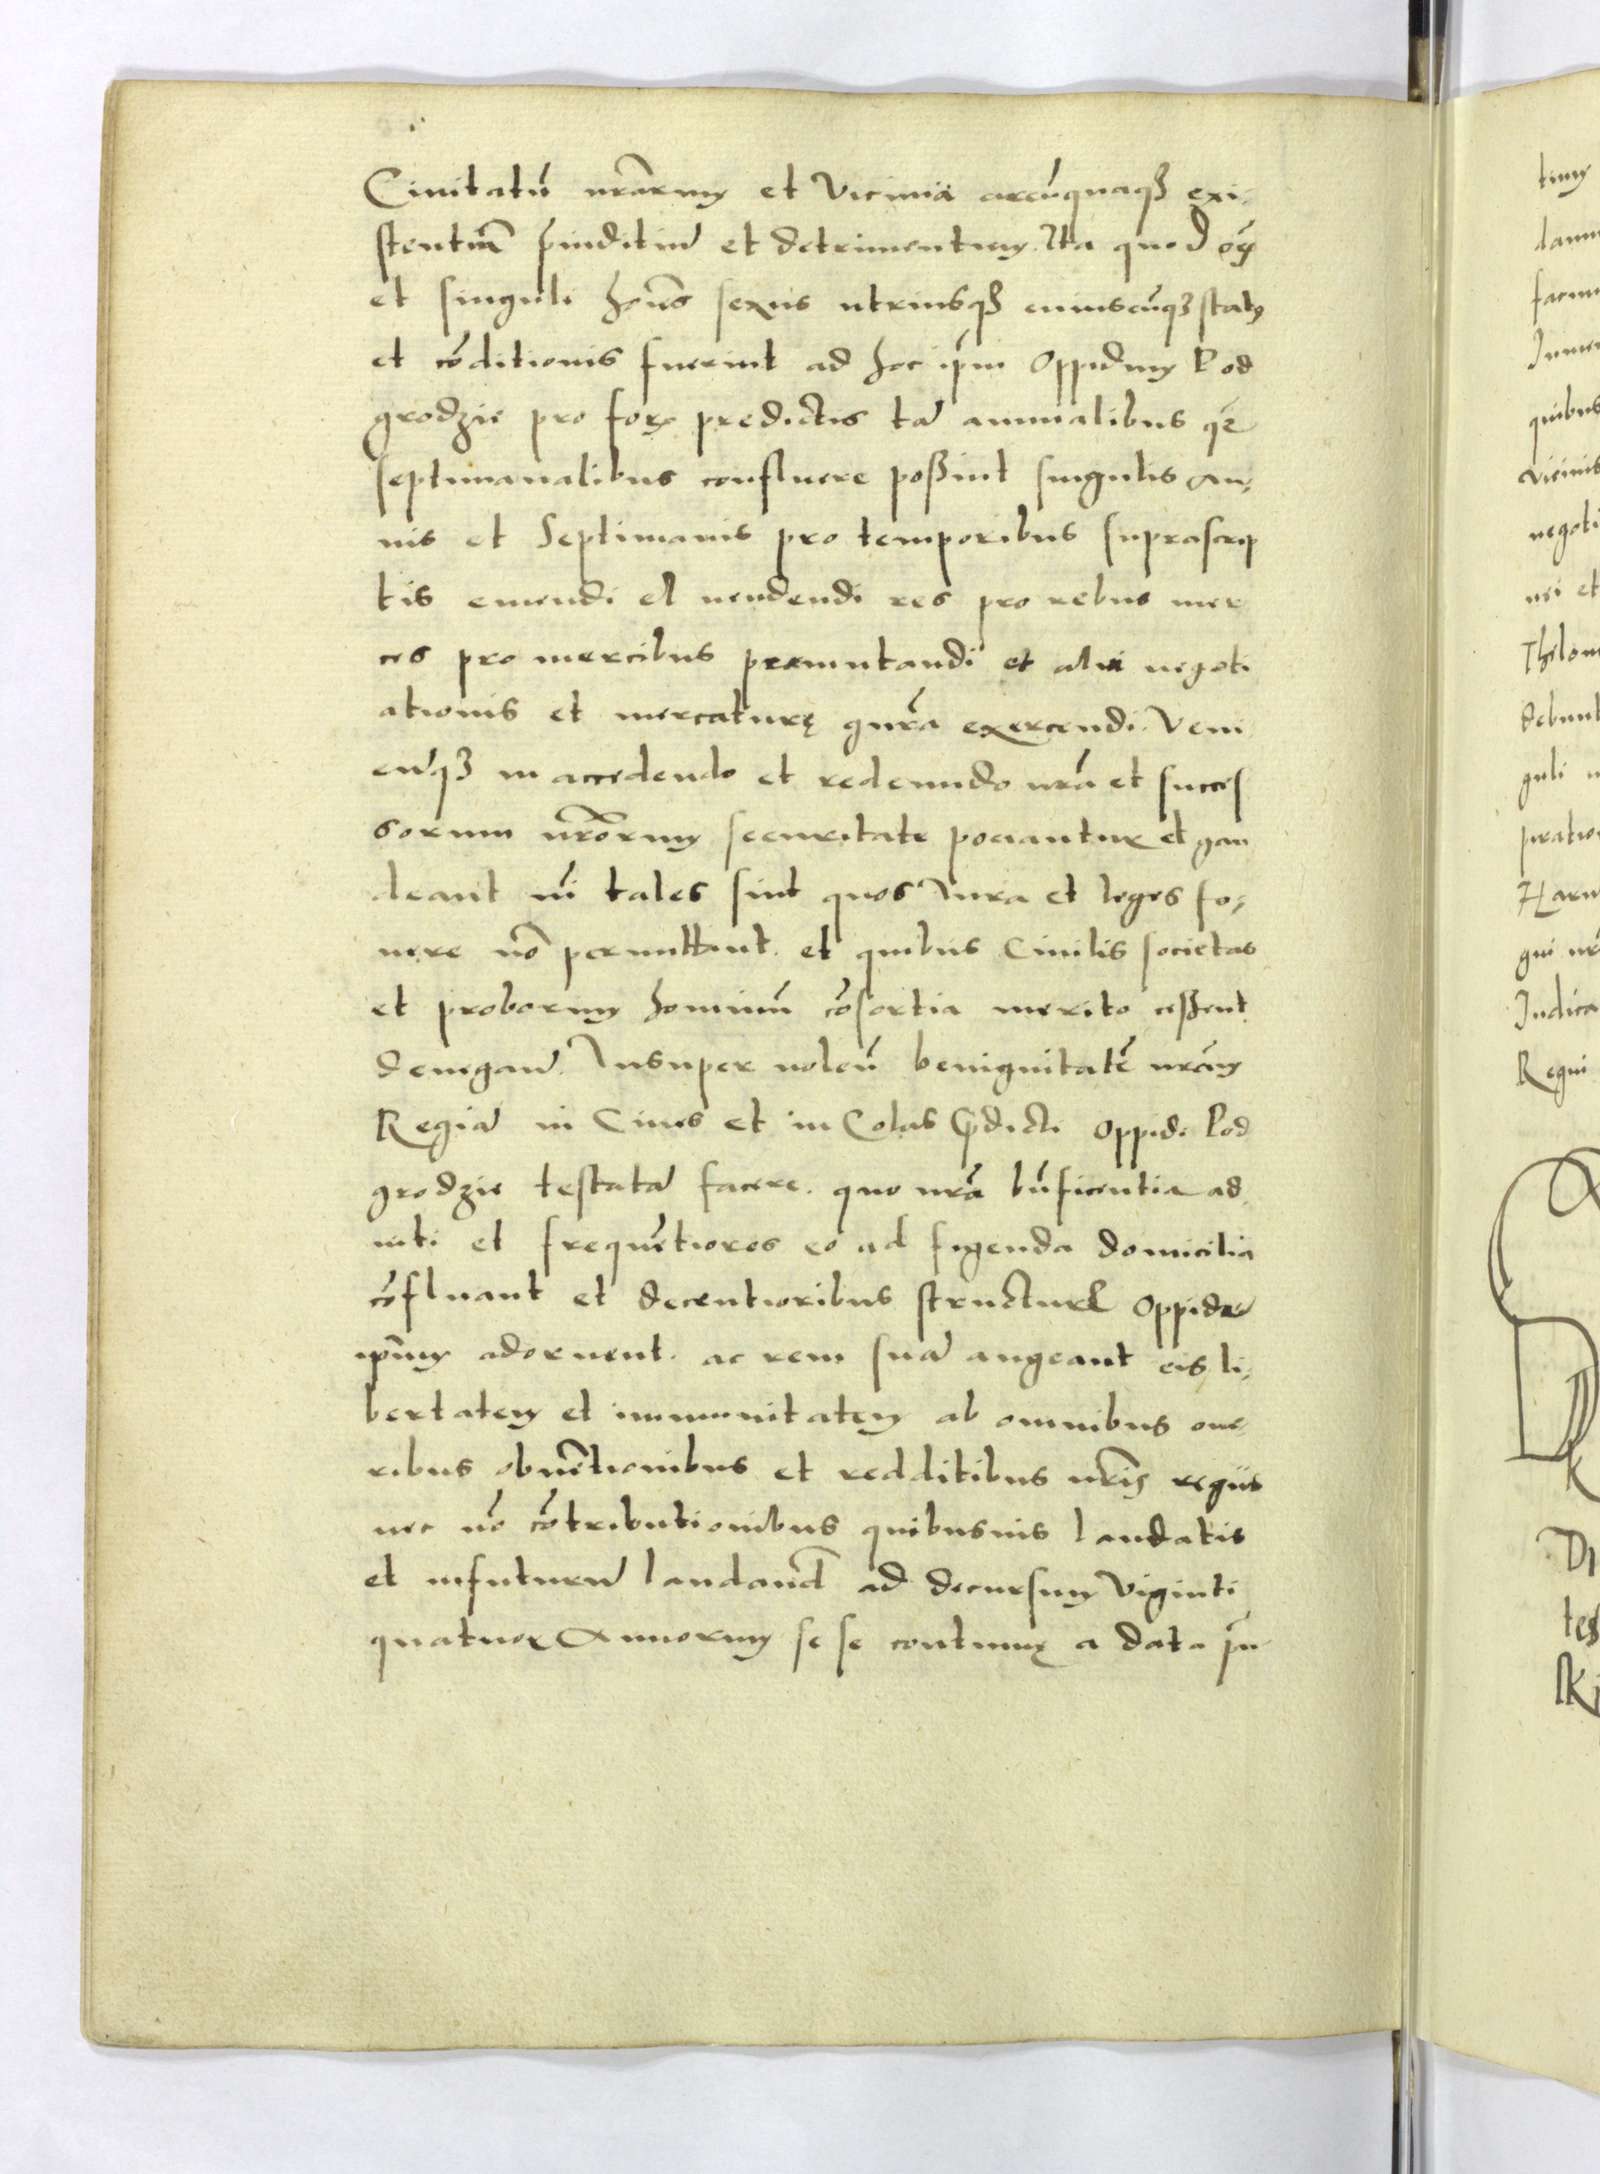 Ciuitatũ nrãrum et Vicinia circũquaqꝫ exi-
stentiũ p̃iuditiũ et detrimentum. Ita quod oẽs
et singuli hoĩes sexus utriusqꝫ cuiuscũqꝫ status
et cõditionis fuerint ad hoc ip̃m Oppidum Pod
grodzie pro foris predictis tã annualibus q̃
septimanalibus confluere poßint singulis An-
nis et Septimanis pro temporibus suprascrip
tis emendi el uendendi res pro rebus mer
ces pro mercibus permutandi et alia negoti
ationis et mercaturę gñra exercendi. Veni
entqꝫ in accedendo et redeundo nrã et succes
sorum nrõrum securitate pociantur et gau
deant nĩ tales sint quos Iura et leges fo-
uere nõ permittunt. et quibus Ciuilis societas
et proborum hominũ cõsortia merito ceßent
denegari. Insuper uolen̄ benignitatẽ nrãm
Regiã in Ciues et in Colas p̃dicti Oppidi Pod
grodzie testatã facere. quo nrã bñficentia ad-
iuti et frequẽtiores eo ad figenda domicilia
cõfluant et decentioribus structuris Oppidũ
ip̃um adornent. ac rem suã augeant eis li-
bertatem et immunitatem ab omnibus one-
ribus obuẽtionibus et redditibus nrĩs regiis
nec nõ cõtributionibus quibusuis laudatis
et infuturũ laudand̃ ad decursum Viginti
quatuor Annorum se se continuę a data p̃n
tium
negoti
Thelon
debunt
guli
Iudica
Regni